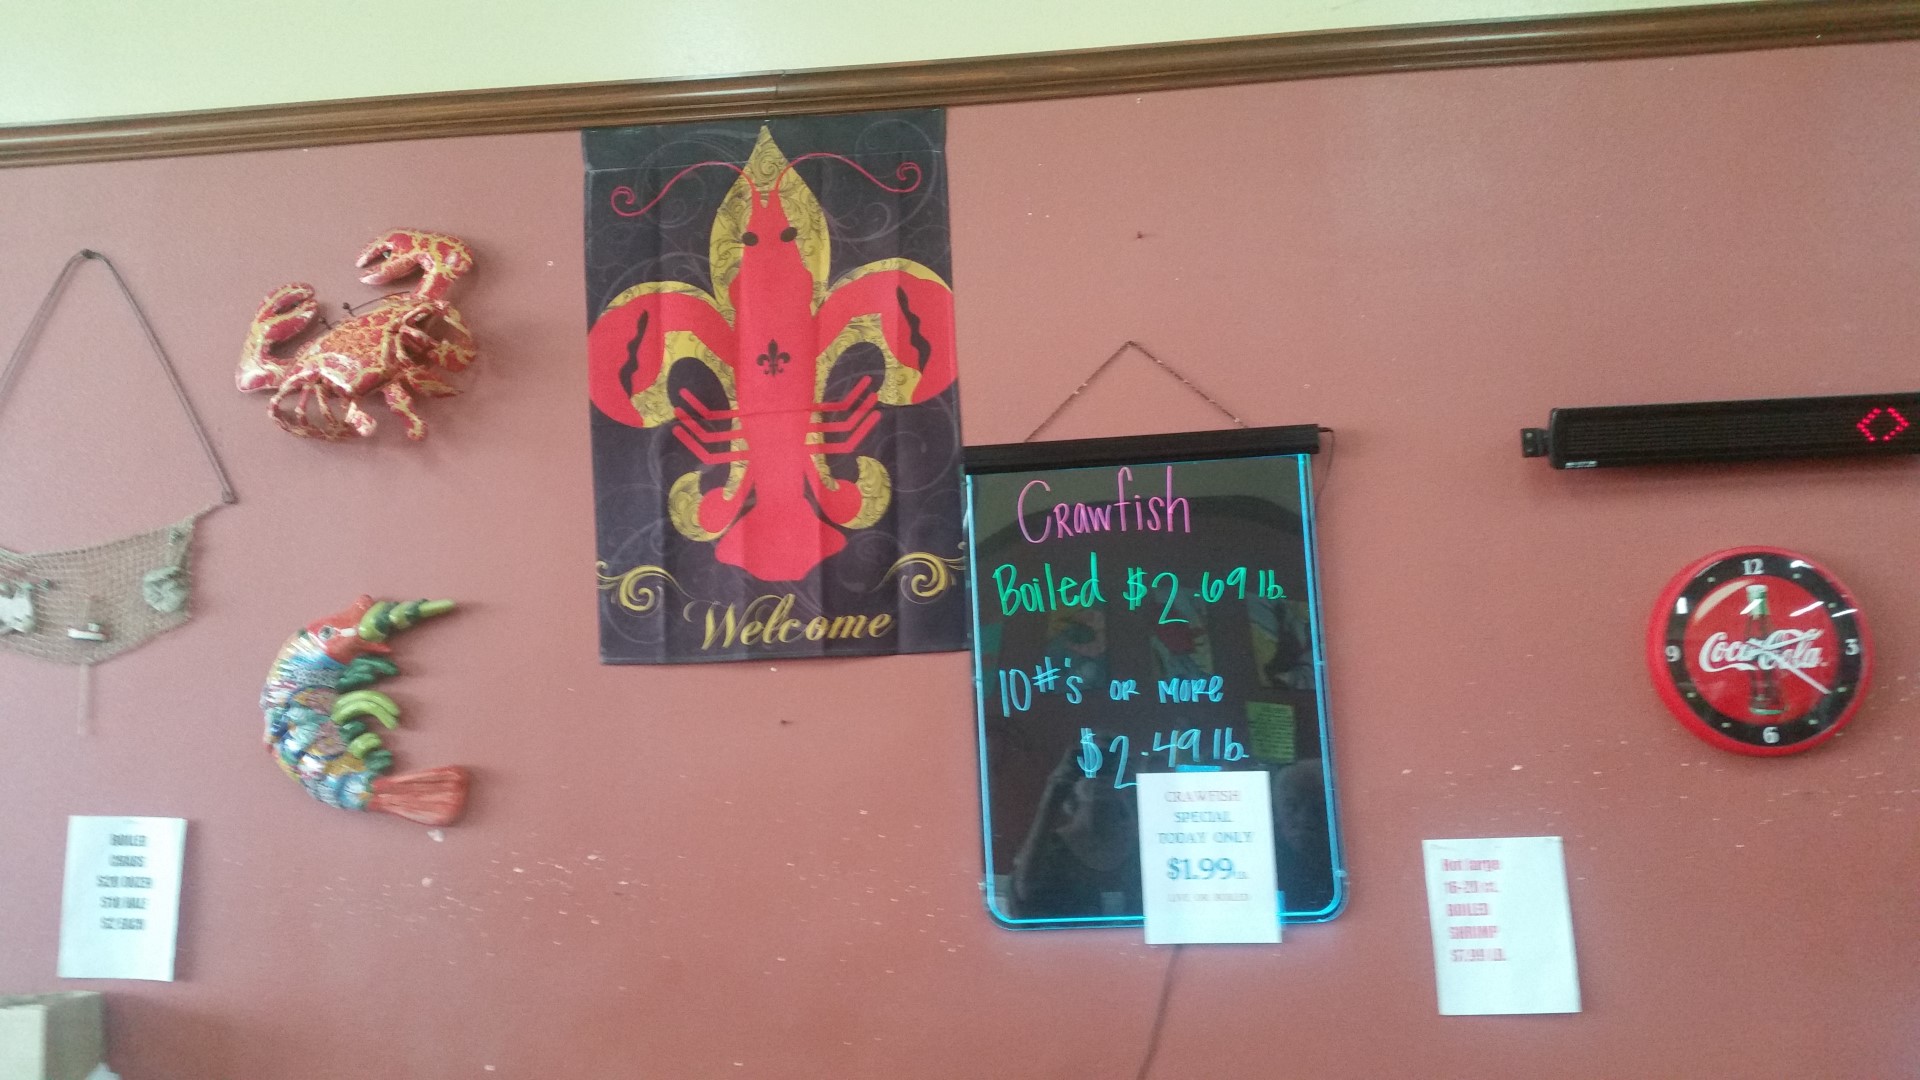 Welcome
Crawfish
Boiled $2.69 lb.
10#'s or more
$2.49 lb.
CRAWFISH
SPECIAL
TODAY ONLY
$1.99 LB.
LIVE OR BOILED
12
3
6
9
Coca-Cola
BOILED
CRABS
$20 DOZEN
Hot large
16-20 ct.
BOILED
SHRIMP
$7.99 LB.